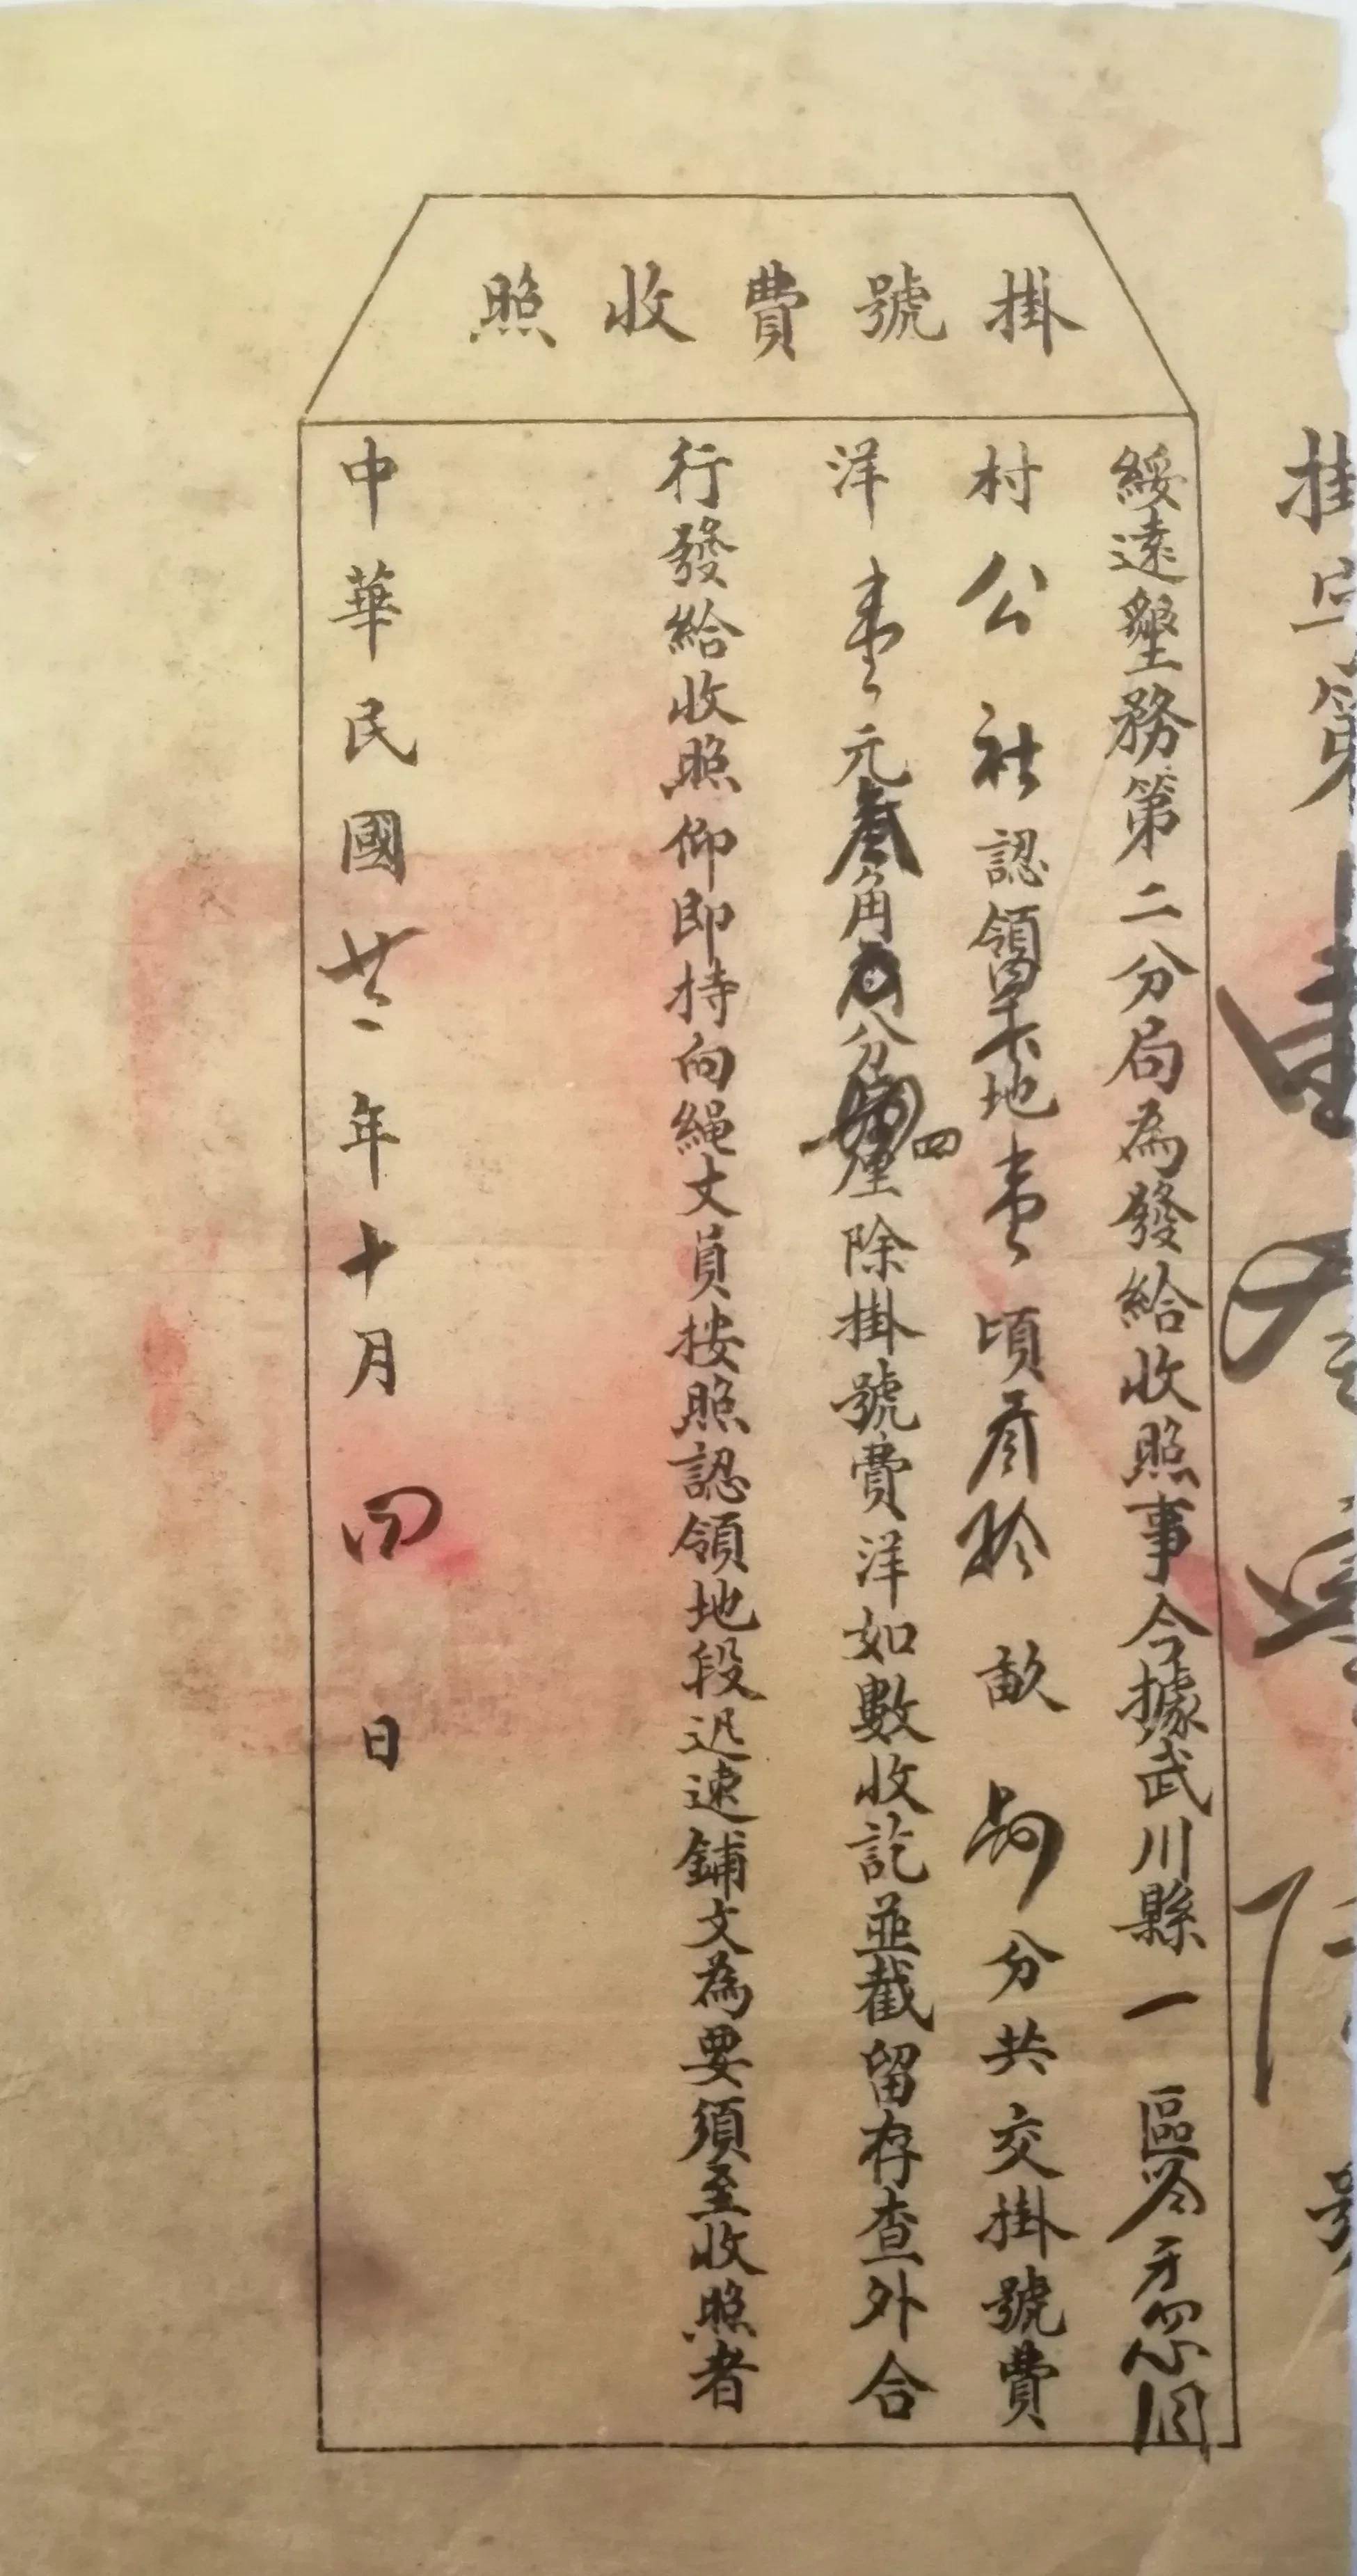 掛號費收照
掛字第壹
號
綏遠墾務第二分局為發給收照事今據武川縣一區
村公社認領地壹頃叁拾畝分共交掛號費
洋壹元叁角分四厘除掛號費洋如數收訖並截留存查外合
行發給收照仰即持向繩丈員按照認領地段迅速鋪文為要須至收照者
中華民國廿二年十月四日